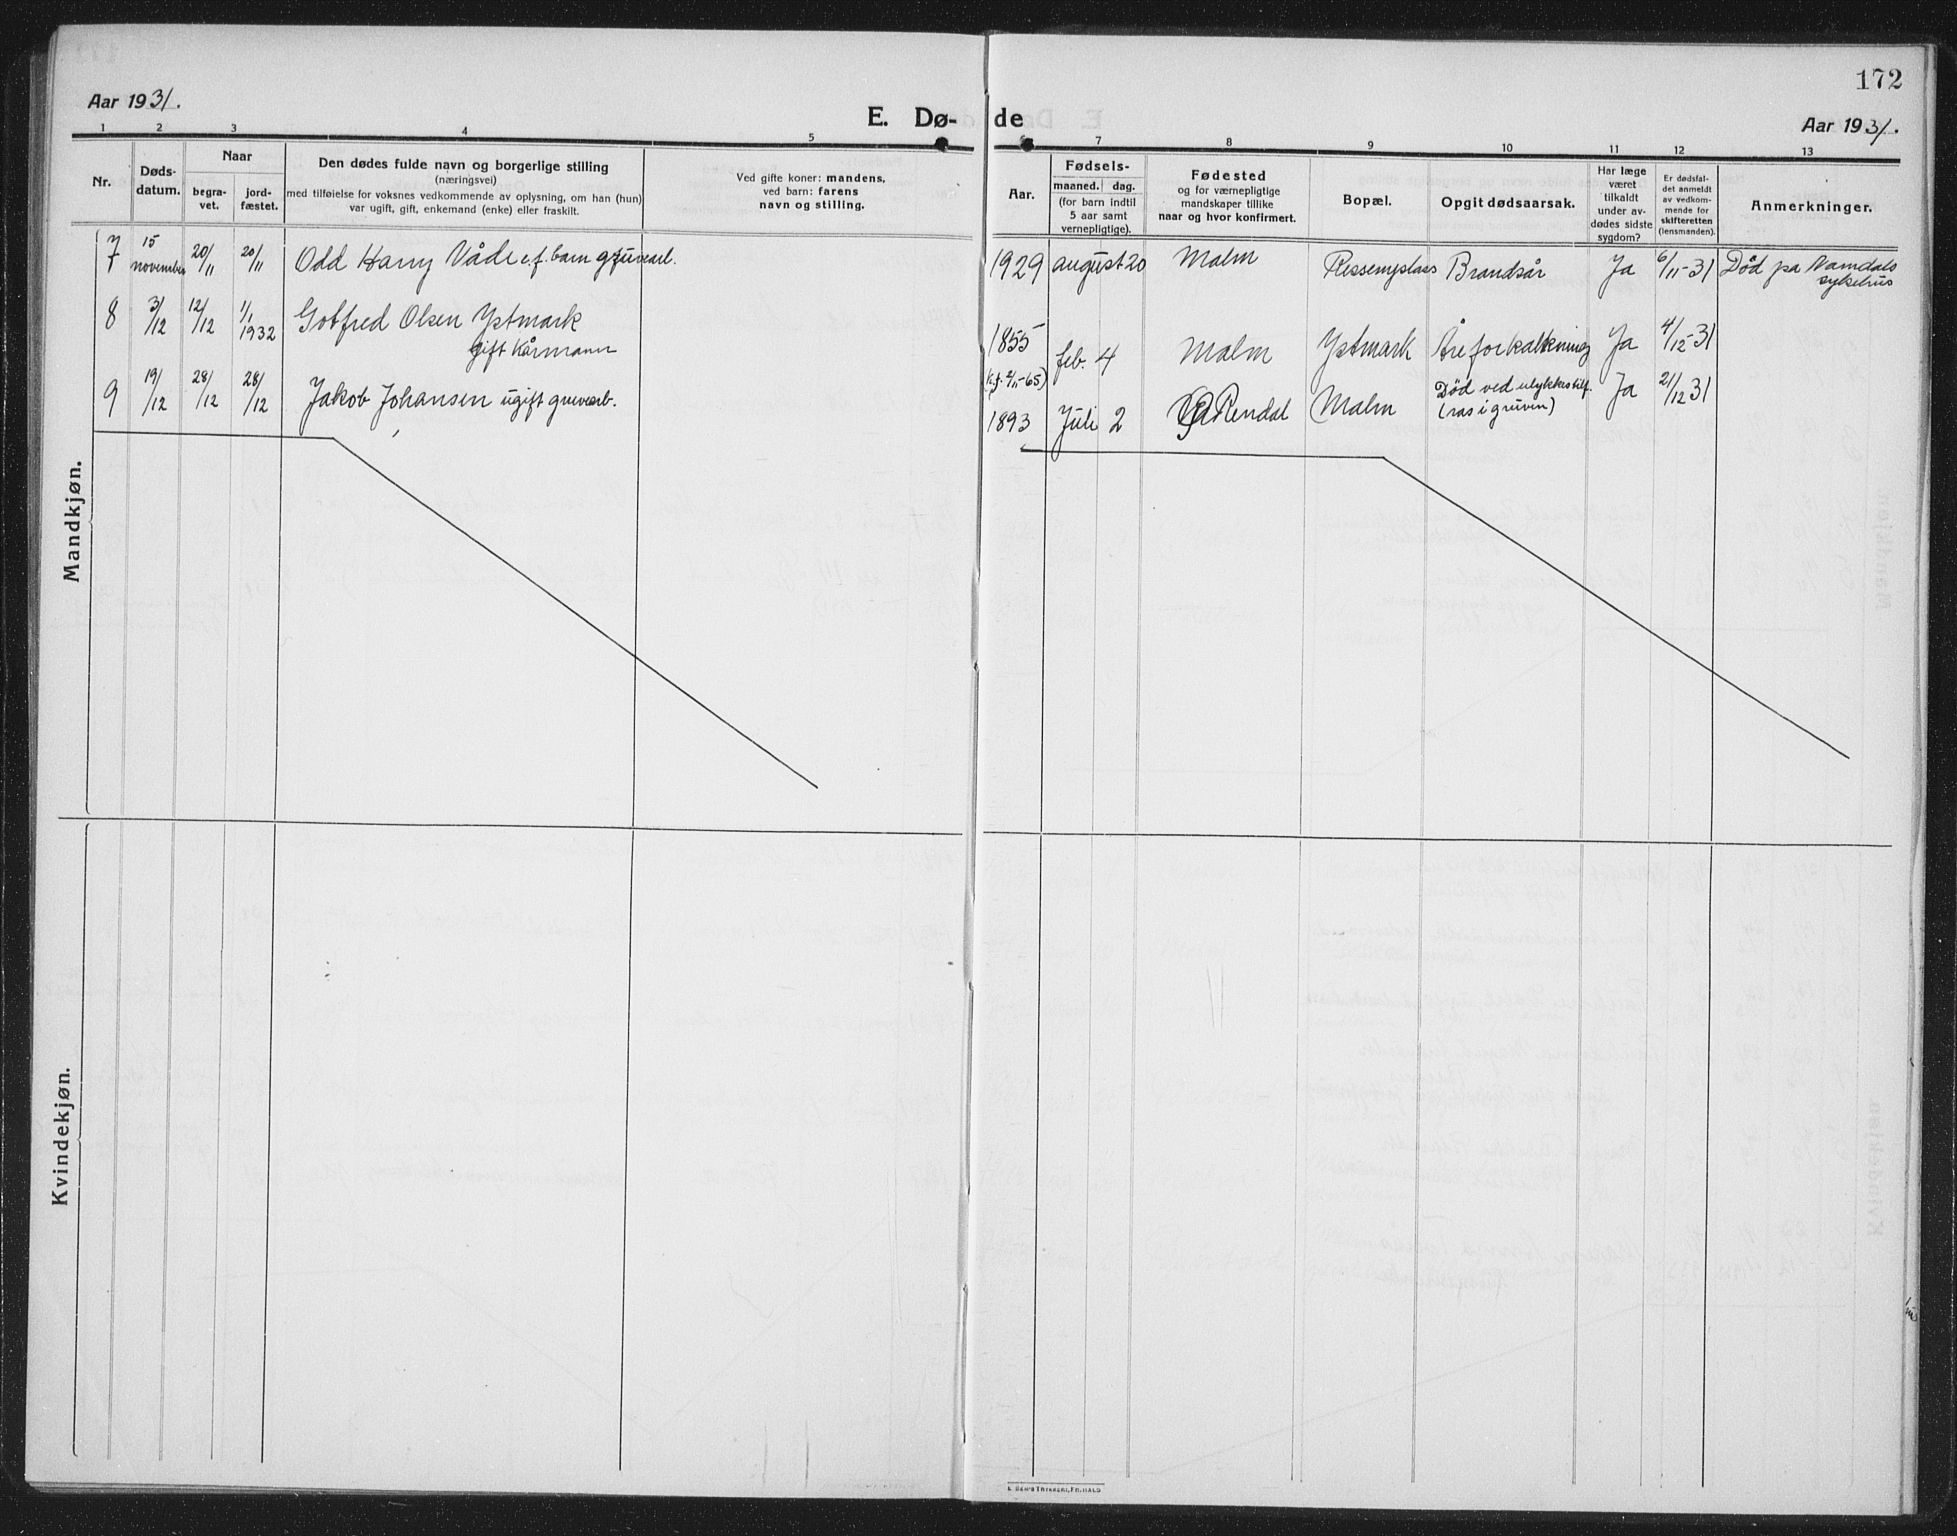 172
Aar 1931.
E. Dø- de
Aar 1931.
1 2 3 4 5 6 7 8 9 10 11 12 13
Nr.
Døds-
datum.
Naar
begra-
vet.
jord-
fæstet.
Den dødes fulde navn og borgerlige stilling
(næringsvei)
med tilføielse for voksnes vedkommende av oplysning, om han (hun)
var ugift, gift, enkemand (enke) eller fraskilt.
Ved gifte koner: mandens,
ved barn: farens
navn og stilling.
Aar.
Fødsels-
maaned. dag.
(for barn indtil
5 aar samt
vernepligtige).
Fødested
og for værnepligtige
mandskaper tillike
naar og hvor konfirmert.
Bopæl.
Opgit dødsaarsak.
Har læge
været
tilkaldt
under av-
dødes sidste
sygdom?
Er dødsfal-
det anmeldt
av vedkom-
mende for
skifteretten
(lensmanden).
Anmerkninger.
Mandkjøn.
7 15 november 20/11 20/11 Odd Harry Våde e.f. barn gruvearb. 1929 august 20 Malm Brandsår Ja 6/11-31 Død pa Namdals
sykehus
8 3/12 12/12 1/1 1932 Gotfred Olsen Ystmark
gift kårmann
1855 feb. 4 Malm Ystmark Åreforkalkning Ja 4/12-31
9 19/12 28/12 28/12 Jakob Johansen ugift gruvearb. 1893 Juli 2 Rendal Malm Død ved ulykkestilf.
(ras i gruven) Ja 21/12 31
Kvindekjøn.